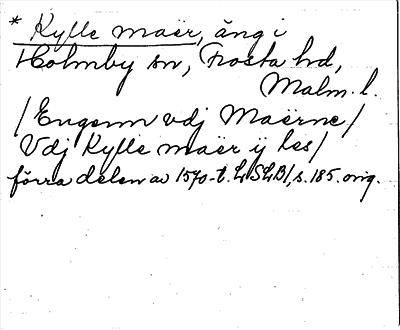 * Kylle maër, äng i
Holmby sn, Frosta hd,
Malm. l.
/Engenn vdj Maërne/
Vdj Kylle maër ij les/
förra delen av 1570-t. LSLB/, s. 185. orig.